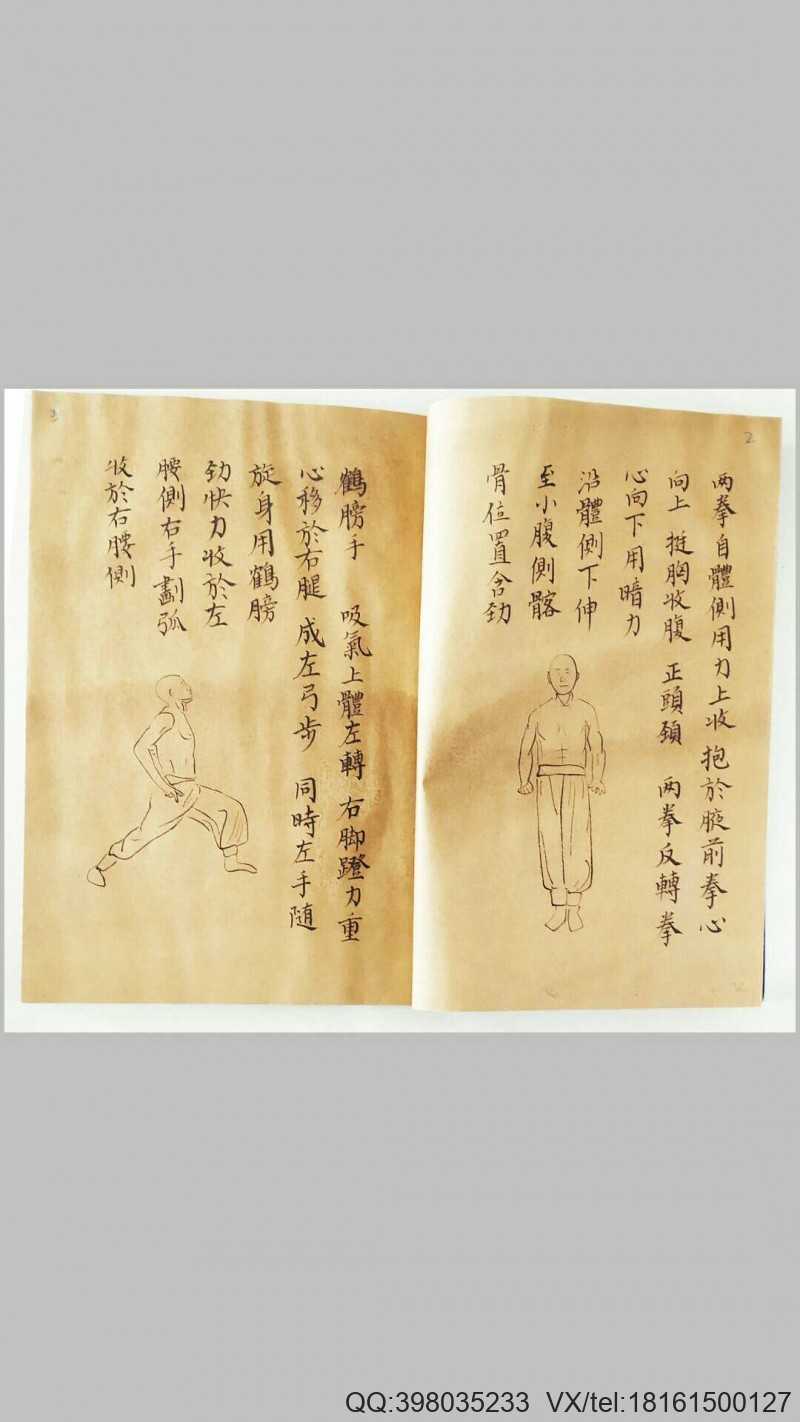 2
两拳自體側用力上收 抱於腋前拳心
向上 挺胸收腹 正頭頸 两拳反轉拳
心向下用暗力
沿體側下伸
至小腹側髂
骨位置含劲
3
鶴膀手 吸氣上體左轉 右脚蹬力重
心移於右腿 成左弓步 同時左手随
旋身用鶴膀
劲快力收於左
腰側右手劃弧
收於右腰側
QQ:398035233 VX/tel:18161500127